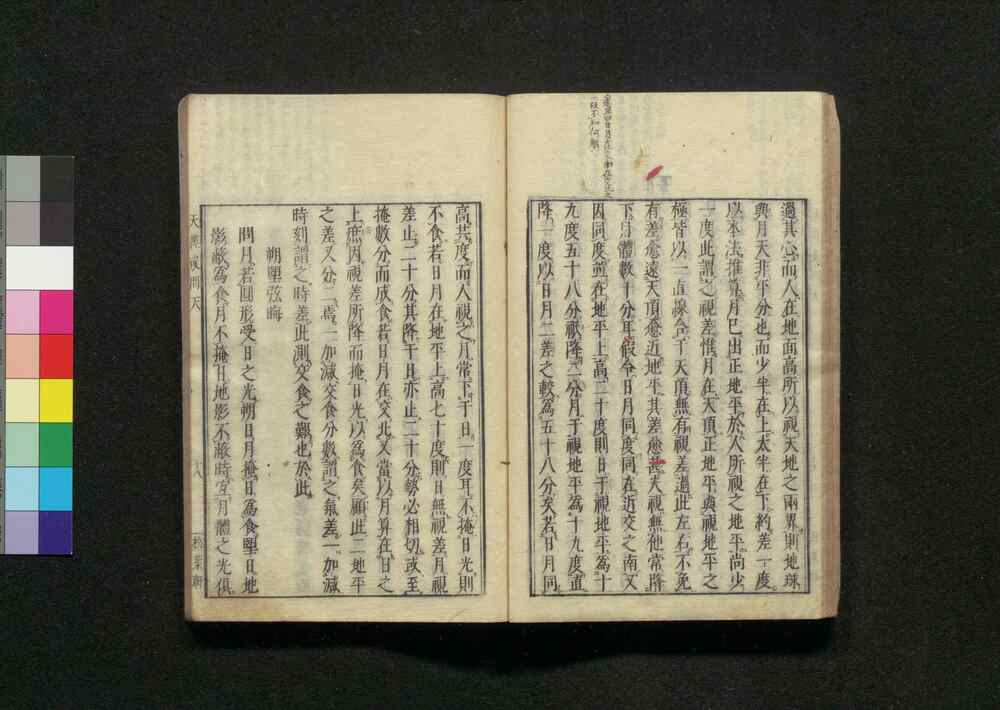 過其心而人在地面高所以視天地之兩界則地球
與月天非平分也而少半在上太半在下約差一度
以本法推算月已出正地平於人所視之地平尚少
一度此謂之視差惟月在天頂正地平與視地平之
極皆以一直線合于天頂無有視差過此左右不免
有差愈遠天頂愈近地平其差愈甚夫視無他常降
下月體數十分耳假令日月同度同在近交之南又
因同度並在地平上高二十度則日于視地平為十
九度五十八分祇降二分月于視地平為十九度直
降一度以日月二差之較為五十八分矣若日月同
高共度而人視之月常下于日一度耳不掩日光則
不食若日月在地平上高七十度則日無視差月視
差止二十分其降于日亦止二十分勢必相切或至
掩數分而成食若日月在交北又當以月算在日之
上庶因視差所降而掩日光以為食矣顧此二地平
之差又分二焉一加減交食分數謂之氣差一加減
時刻謂之時差此測交食之難也於此
朔望弦晦
問月若圓形受日之光朔日月掩日為食望日地
影蔽為食月不掩日地影不蔽時宜月體之光俱
天 問天
十八